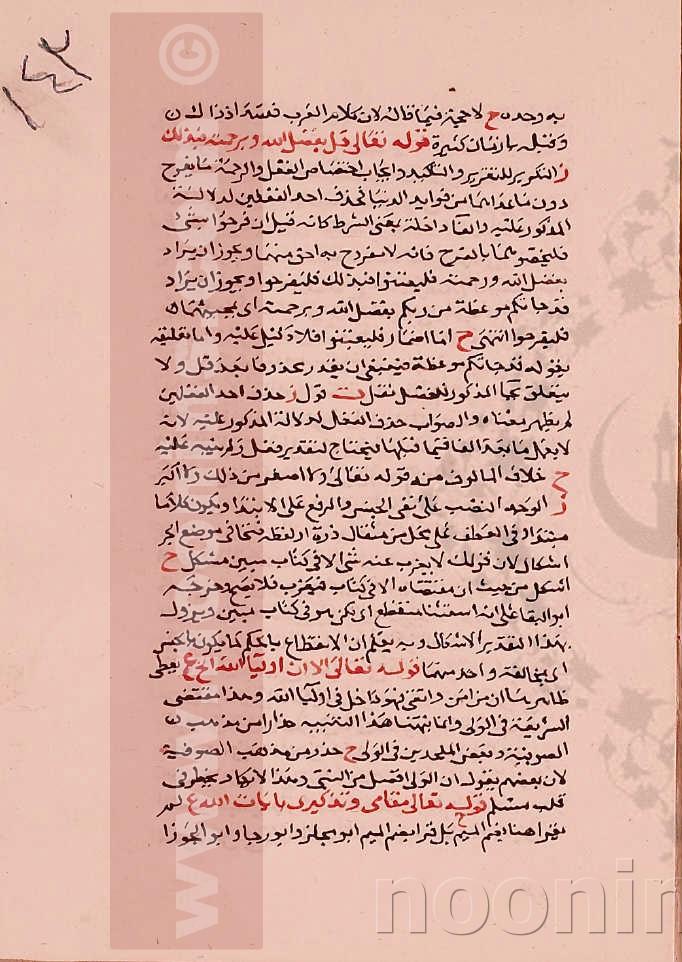 ١٤٣
به وحده ح لا حجة فيما قاله لان كلام العرب
وقيله بازمان كثيرة قوله تعالى قل بفضل الله وبرحمته فبذلك
ز التكرير للتقرير والتاكيد وايجاب اختصاص الفضل والرحمة ما يفرح
دون ما عداهما من فوايد الدنيا فحذف احد الفعلين لدلالة
المذكور عليه والفا داخلة بمعنى الشرط كانه قيل ان فرحوا بشئ
فليخصوهما بالفرح فانه لا مفروح به احق منهما ويجوز ان يراد
بفضل الله ورحمته فليعتنوا فبذلك فليفرحوا ويجوز ان يراد
قد جاتكم موعظة من ربكم بفضل الله وبرحمته اى بمجيئهما
فليفرحوا انتهى ح اما اضمار فليعتنوا فلا دليل عليه واما تعليقه
بقوله قد جاتكم موعظة فينبغى ان يقدر محذوفا بعد قل ولا
يتعلق بجا المذكور للفصل بقل ت قول ز حذف احد الفعلين
لم يظهر معناه والصواب حذف الفعل لدلالة المذكور عليه لانه
لا يعمل ما بعد الفا فيما قبلها فيحتاج لتقدير فعل ولم ينبه عليه
ح خلاف المالوف منه قوله تعالى ولا اصغر من ذلك ولا اكبر
ز الوجه النصب على نفى الجنس والرفع على الابتدا ويكون كلاما
مبتدا وفى العطف على محل من مثقال ذرة او لفظه فتحا فى موضع الجر
اشكال لان قولك لا يعزب عنه شئ الا فى كتاب مبين مشكل ح
اشكل من حيث ان مقتضاه الا فى كتاب فيعزب فلا يصح وخرجه
ابو البقا على انه استثنا منقطع اى لكن هو فى كتاب مبين ويزول
بهذا التقدير الاشكال وبه يعلم ان الانقطاع بالحكم كما يكون بالجنس
اى بمخالفة واحد منهما قوله تعالى الا ان اوليا الله الخ ع يعطى
ظاهرها ان من امن واتقى فهو داخل فى اوليا الله وهذا مقتضى
الشريعة فى الولى وانما نبهنا هذا التنبيه حذارا من مذهب
الصوفية وبعض الملحدين فى الولى ح حذر من مذهب الصوفية
لان بعضهم يقول ان الولى افضل من النبى وهذا لا يكاد يخطر فى
قلب مسلم قوله تعالى مقامى وتذكيرى بايات الله ع لم
يقرا هنا بضم الميم ح بل قرا بضم الميم ابو مجلز وابو رجا وابو الجوزا
©
www.
noonin